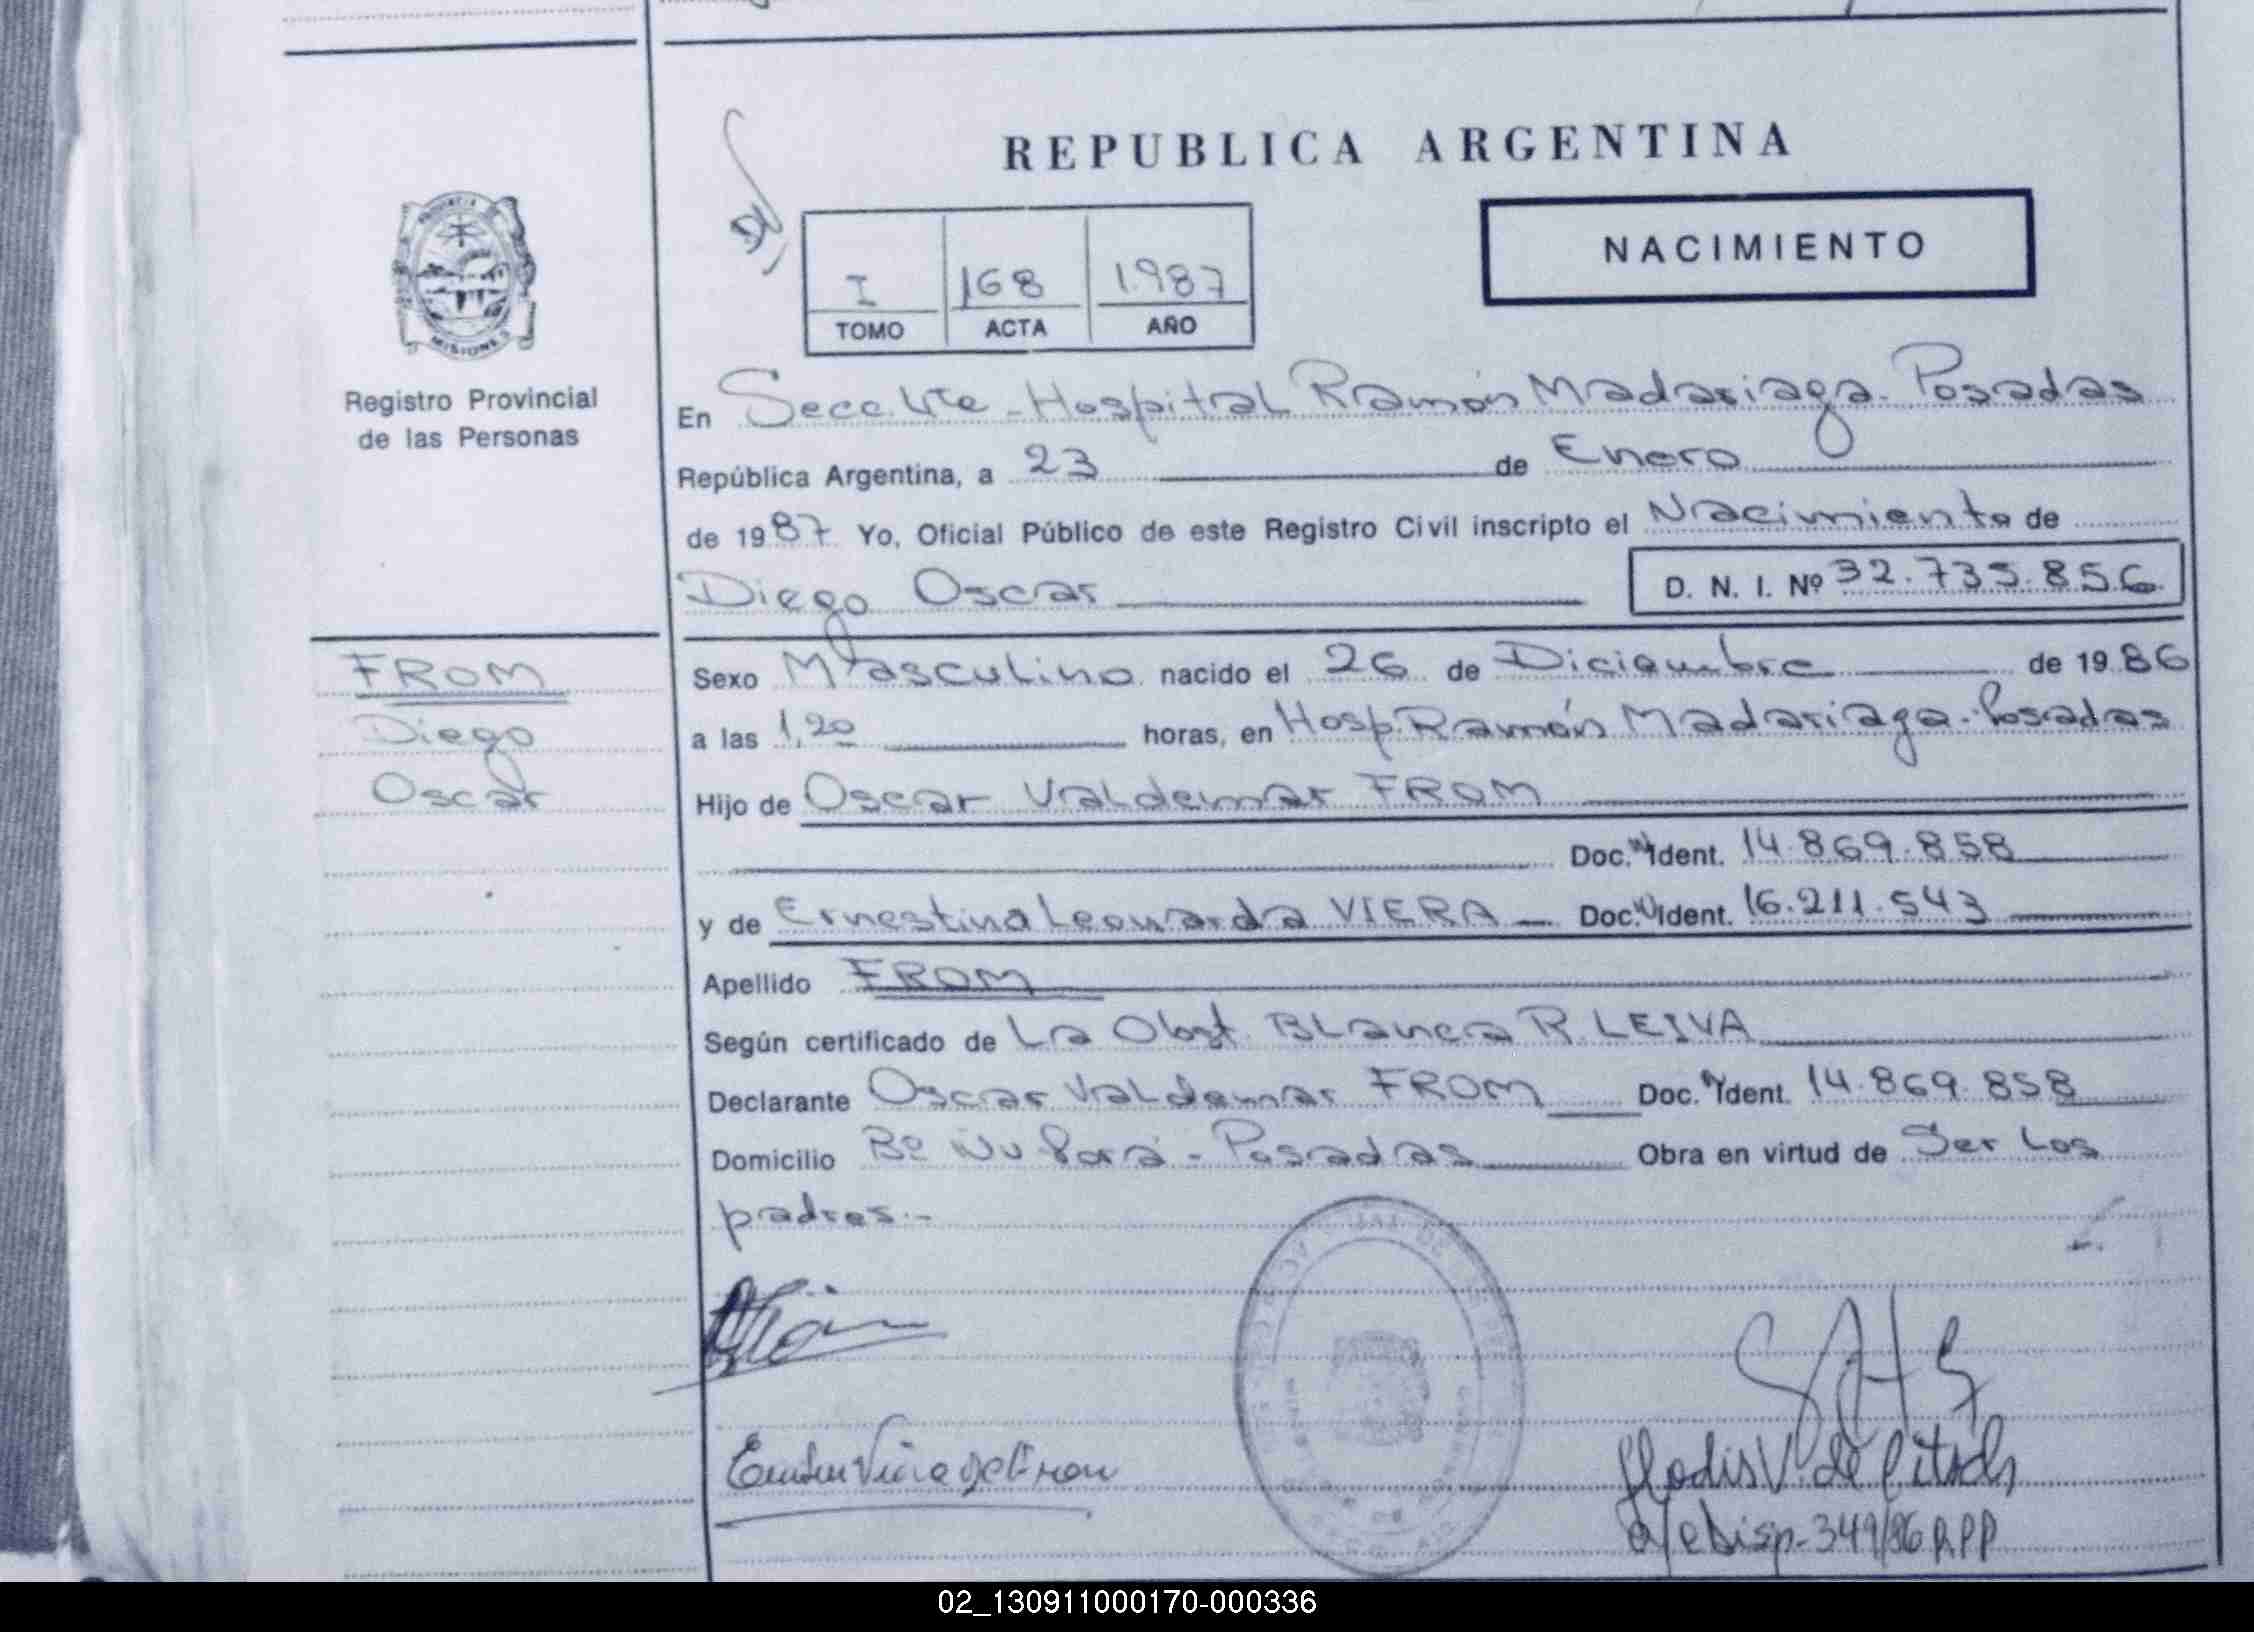 REPUBLICA ARGENTINA
NACIMIENTO
I 168 1987
TOMO ACTA AÑO
PROVINCIA DE
MISIONES
Registro Provincial
de las Personas
En Secc. Hospital Ramón Madariaga - Posadas
República Argentina, a 23 de Enero
de 1987 Yo, Oficial Público de este Registro Civil inscripto el Nacimiento de
Diego Oscar D. N. I. Nº 32.735.856
FROM
Diego
Oscar
Sexo Masculino nacido el 26 de Diciembre de 1986
a las 1,20 horas, en Hosp. Ramón Madariaga - Posadas
Hijo de Oscar Valdemar FROM
Doc. Ident. 14.869.858
y de Ernestina Leonarda VIERA Doc. Ident. 16.211.543
Apellido FROM
Según certificado de La Obst. Blanca R. LEIVA
Declarante Oscar Valdemar FROM Doc. Ident. 14.869.858
Domicilio Bº Ñu Porá - Posadas Obra en virtud de Ser Los
padres.-
02_130911000170-000336